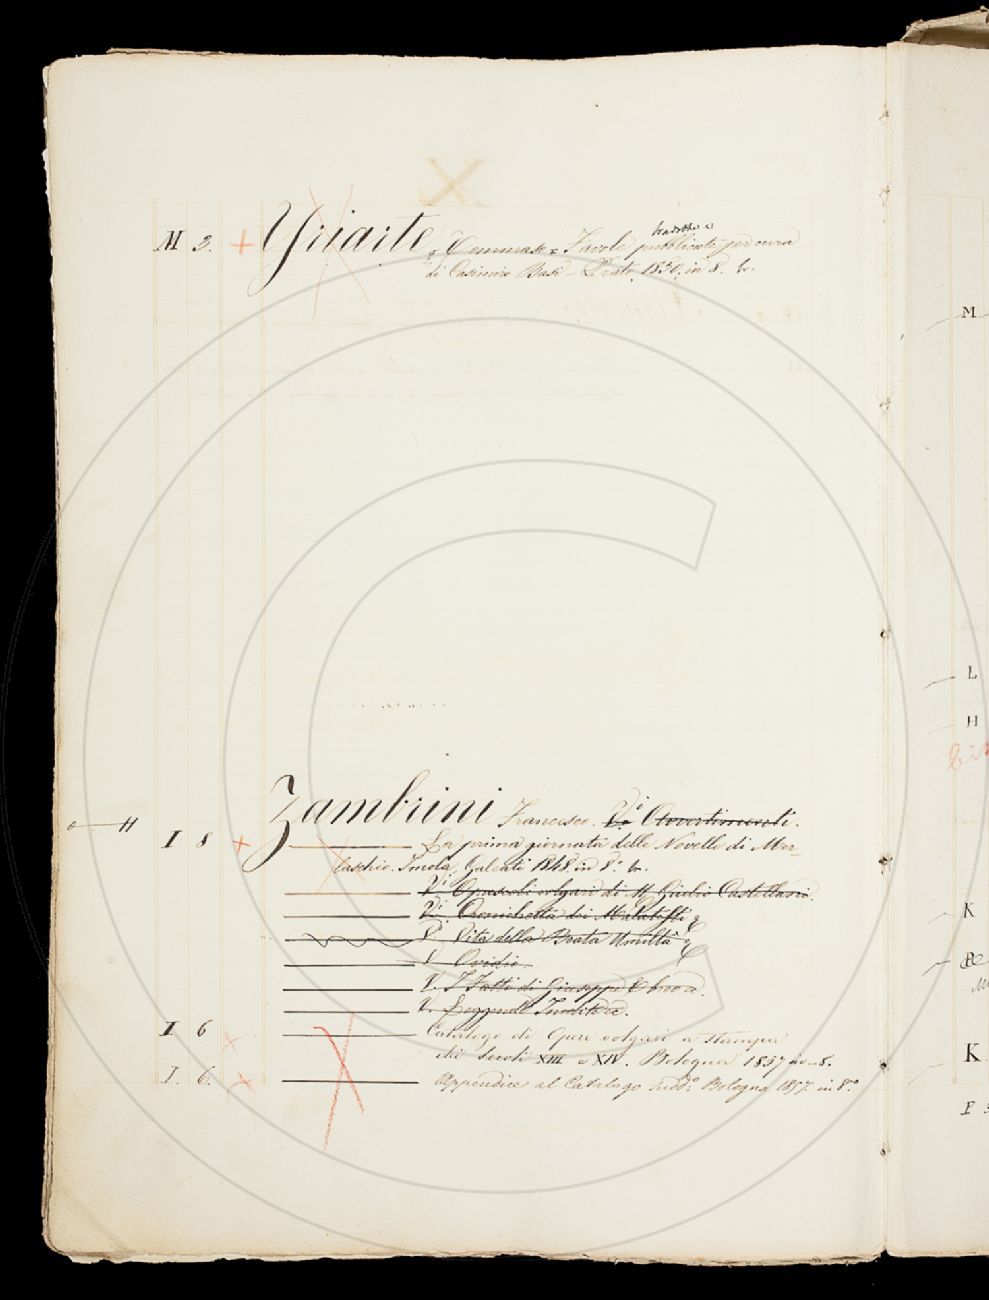 X
M 3. + Yriarte = Tommaso = Favole tradotte e pubblicate per cura
di Casimiro Basi - Prato, 1850, in 8. br.
M
L
H
Zambrini Francesco. Vi Avvertimenti.
H
I 8 + La prima giornata delle Novelle di Mar-
laschio. Imola, Galeati 1848. in 8.° br.
Vi Opuscoli volgari di Giulio Castellani.
Vi Cronichetta dei Malatesti
V. Vita della Beata Umiltà
V. Ovidio.
V. I Fatti di Giuseppe Ebreo.
V. Leggende Inedite.
I 6 Catalogo di Opere volgari a stampa
dei Secoli XIII e XIV. Bologna 1857 in-8.
I. 6. Appendice al Catalogo sudd.° Bologna 1857. in 8.°
K
K